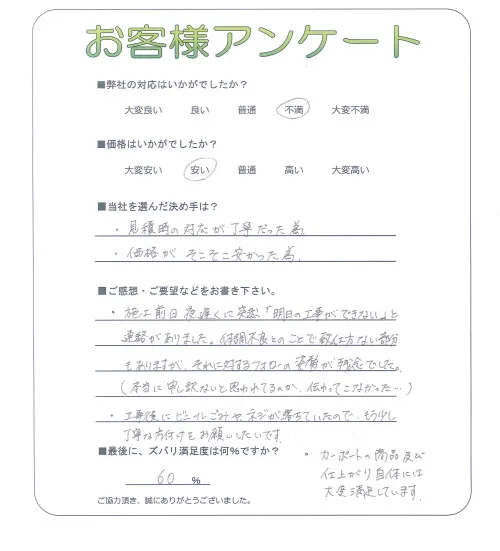 お客様アンケート
■弊社の対応はいかがでしたか？
大変良い 良い 普通 不満 大変不満
■価格はいかがでしたか？
大変安い 安い 普通 高い 大変高い
■当社を選んだ決め手は？
・見積時の対応が丁寧だった為
・価格がそこそこ安かった為.
■ご感想・ご要望などをお書き下さい。
・施工前日夜遅くに突然「明日の工事ができない」と
連絡がありました。体調不良とのことで致仕方ない部分
もありますが、それに対するフォローの姿勢が残念でした。
(本当に申し訳ないと思われてるのか、伝わってこなかった…)
・工事後にビニールゴミやネジが落ちていたので、もう少し
丁寧な片付けをお願いしたいです.
■最後に、ズバリ満足度は何％ですか？
60 ％
・カーポートの商品及び
仕上がり自体には
大変満足しています.
ご協力頂き、誠にありがとうございました。